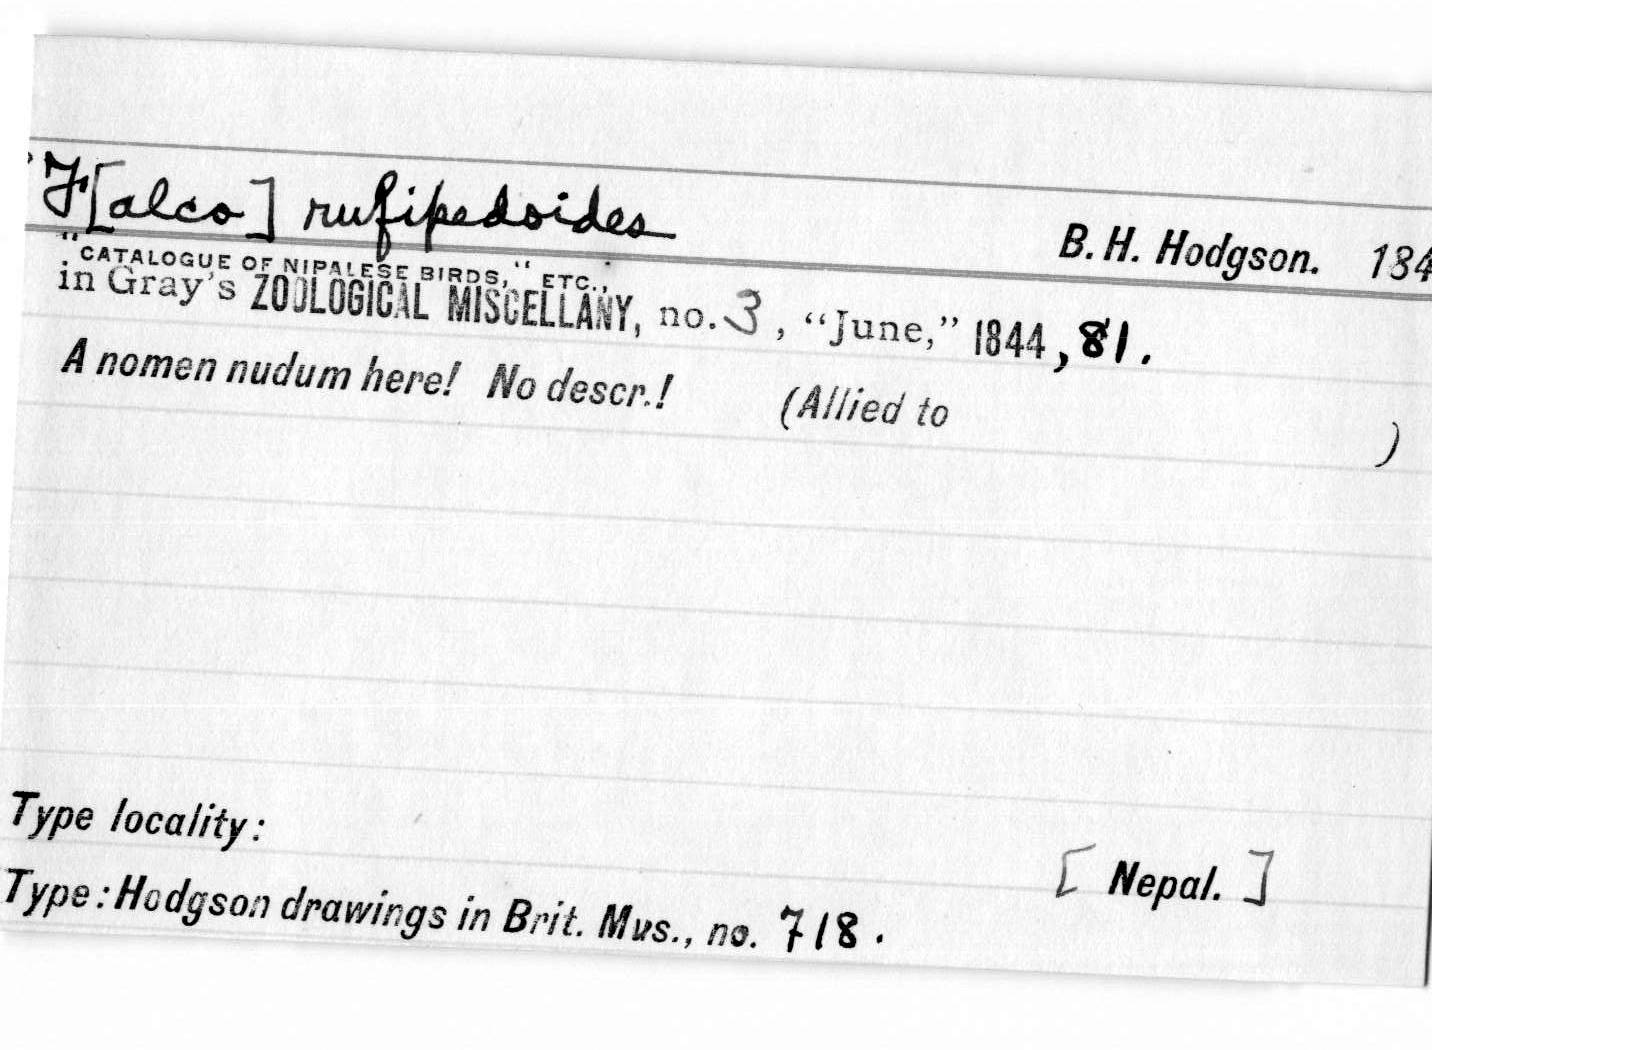 "F[alco] rufipedoides
B. H. Hodgson. 184
"CATALOGUE OF NIPALESE BIRDS," ETC.,
in Gray's ZOOLOGICAL MISCELLANY, no. 3, "June," 1844, 81.
A nomen nudum here! No descr.! (Allied to )
Type locality:
[Nepal.]
Type: Hodgson drawings in Brit. Mus., no. 718.